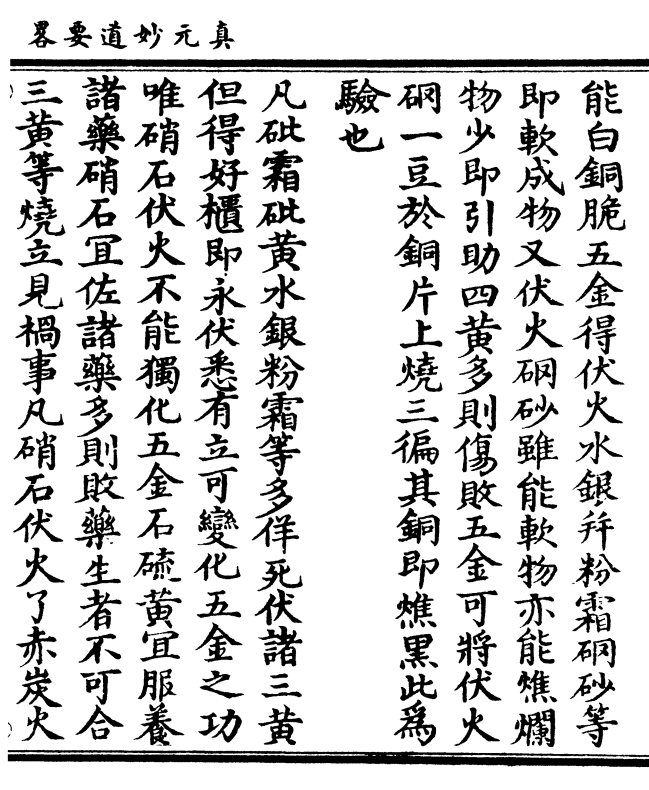 真元妙道要畧
能白銅脆五金得伏火水銀并粉霜硇砂等
即軟成物又伏火硇砂雖能軟物亦能燋爛
物少即引助四黃多則傷敗五金可將伏火
硇一豆於銅片上燒三徧其銅即燋黑此為
驗也
凡砒霜砒黃水銀粉霜等多佯死伏諸三黃
但得好櫃即永伏悉有立可變化五金之功
唯硝石伏火不能獨化五金石硫黃冝服養
諸藥硝石冝佐諸藥多則敗藥生者不可合
三黃等燒立見禍事凡硝石伏火了赤炭火